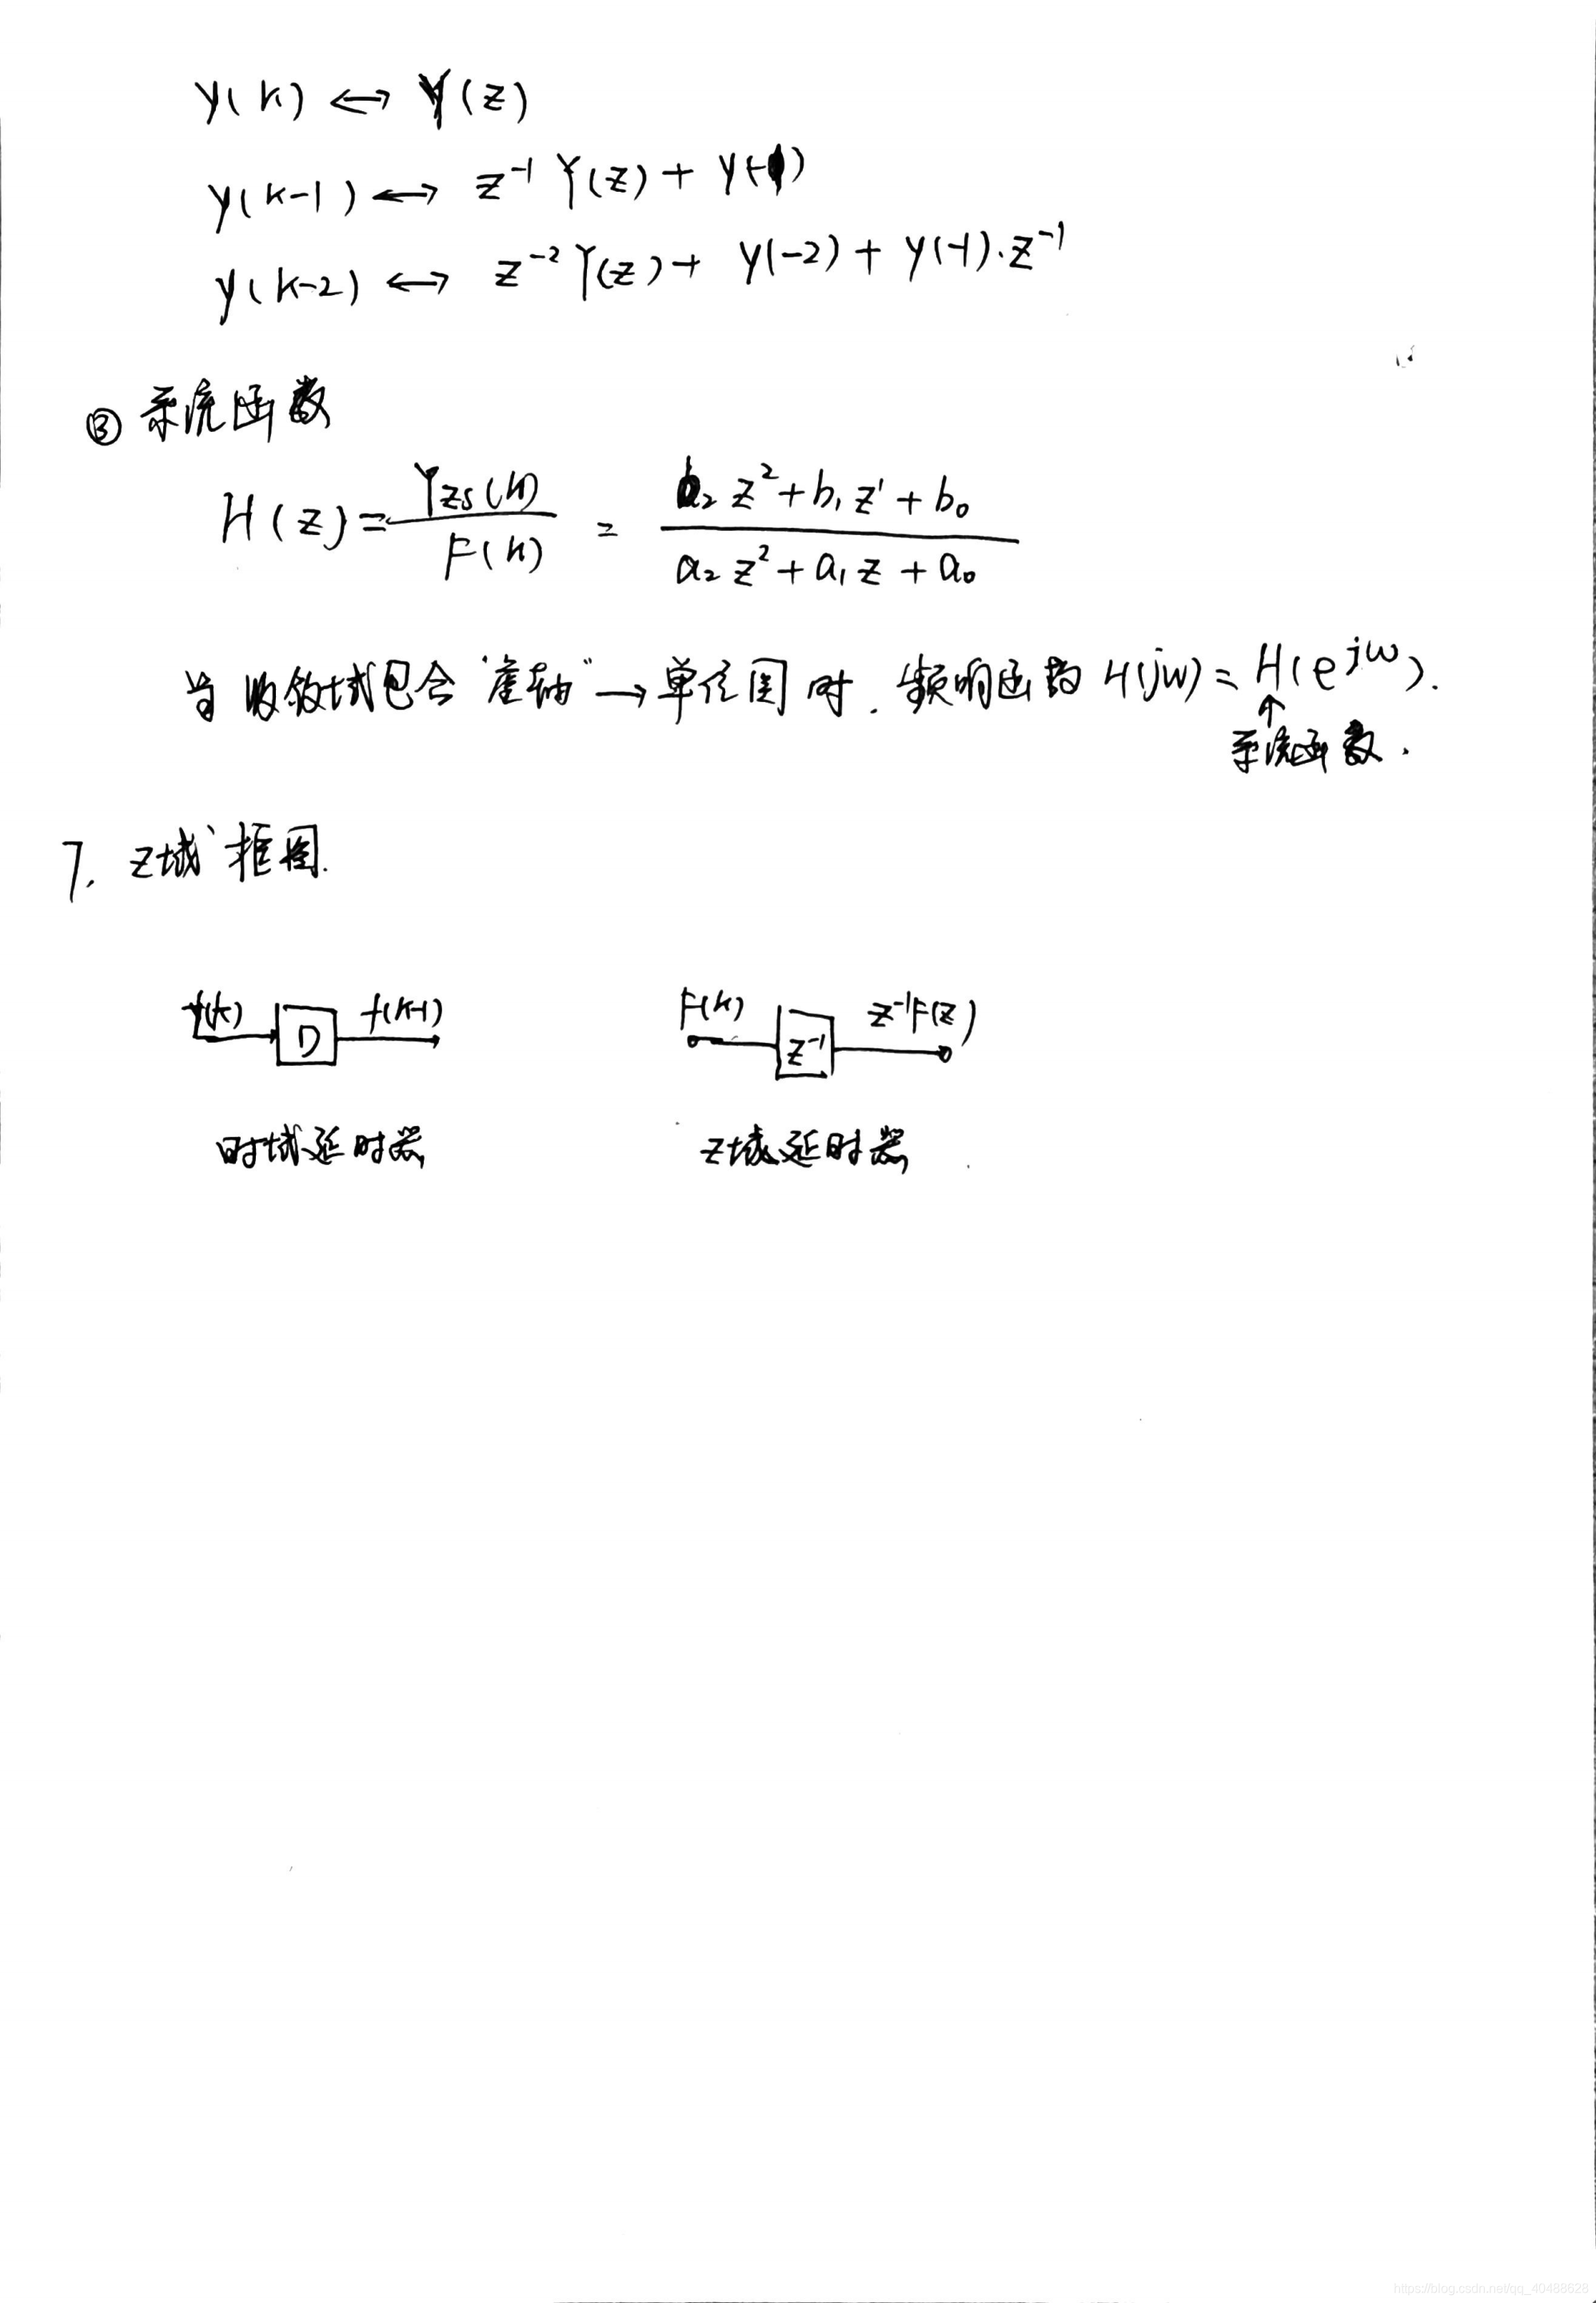 y(k) ↔ Y(z)
y(k-1) ↔ z⁻¹ Y(z) + y(-1)
y(k-2) ↔ z⁻² Y(z) + y(-2) + y(-1)·z⁻¹
③ 系统函数
H(z) = Yzs(k) / F(k) = (b₂z² + b₁z¹ + b₀) / (a₂z² + a₁z + a₀)
当收敛域包含“虚轴”→单位圆时. 频响函数 H(jω) = H(e^jω).
↑
系统函数.
7. z域框图.
f(k) D f(k-1) F(k) z⁻¹ z⁻¹F(z)
时域延时器 z域延时器
https://blog.csdn.net/qq_40488628